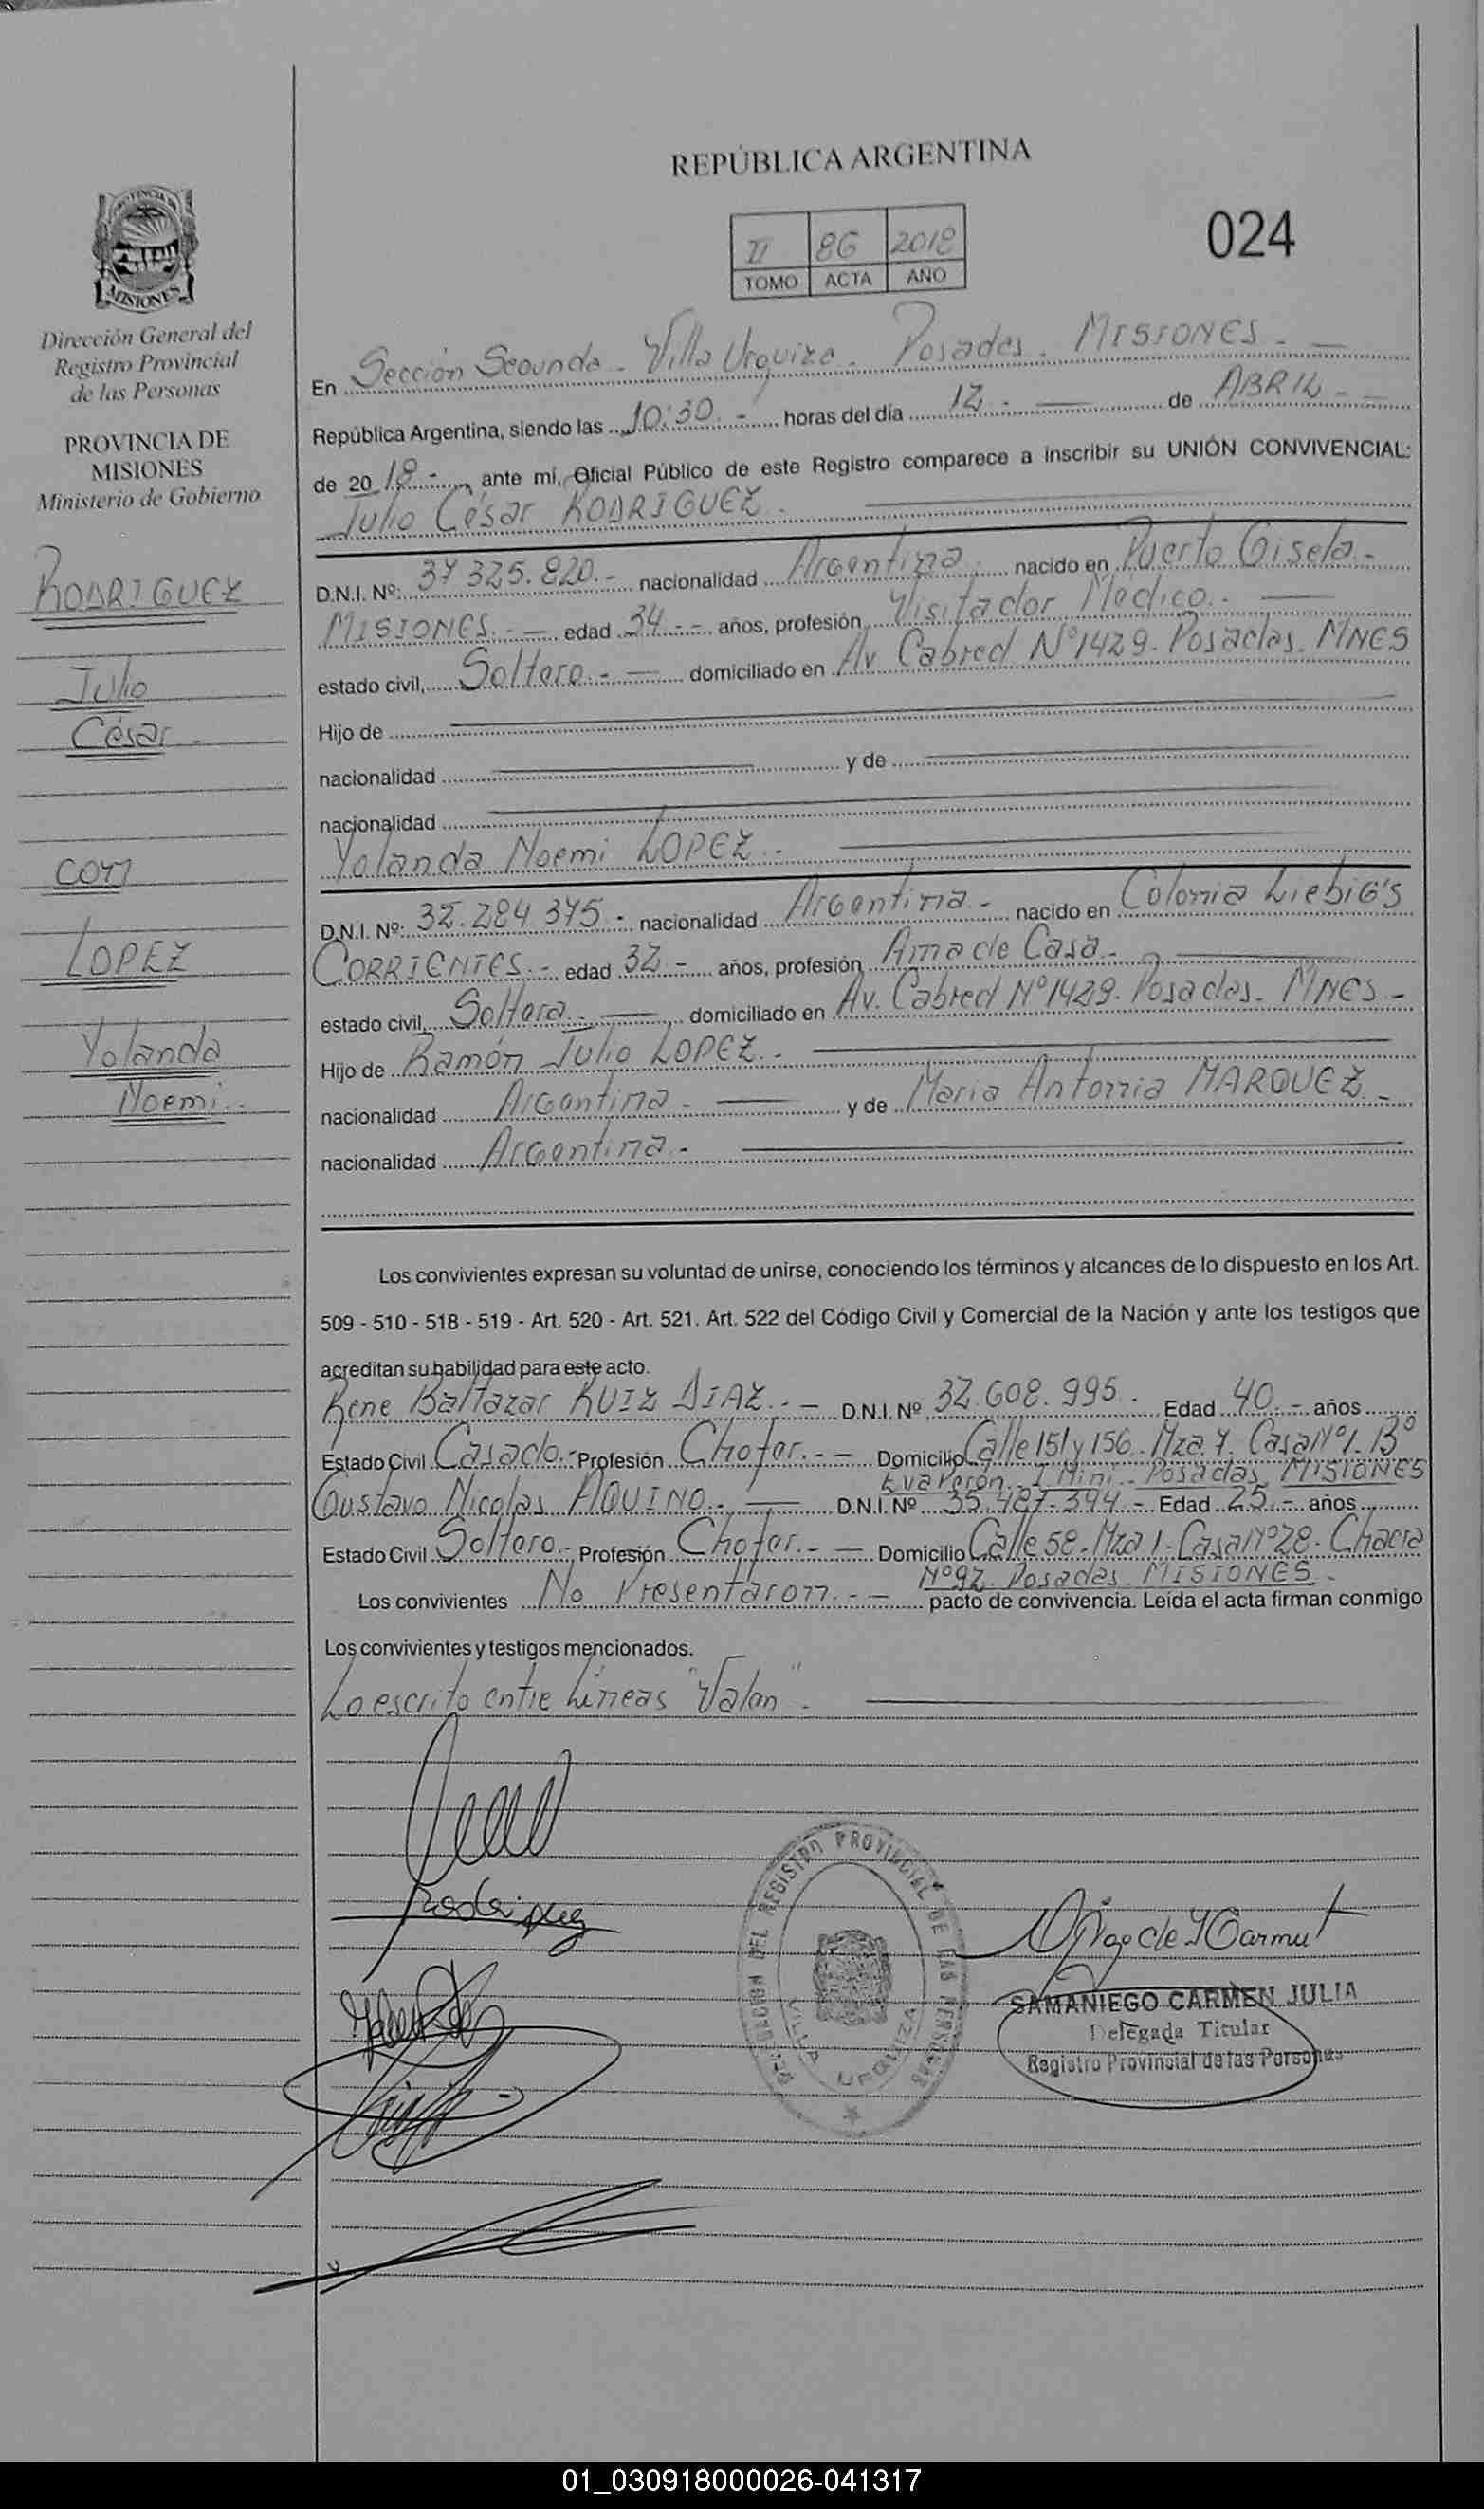 REPÚBLICA ARGENTINA
024
II 86 2018
TOMO ACTA AÑO
PROVINCIA DE
MISIONES
Dirección General del
Registro Provincial
de las Personas
PROVINCIA DE
MISIONES
Ministerio de Gobierno
RODRIGUEZ
Julio
César.-
con
LOPEZ
Yolanda
Noemi.-
En Sección Segunda - Villa Urquiza - Posadas - MISIONES.-
República Argentina, siendo las 10:30.- horas del día 12.- de ABRIL.-
de 2018.- ante mí, Oficial Público de este Registro comparece a inscribir su UNIÓN CONVIVENCIAL:
Julio César RODRIGUEZ.
D.N.I. Nº: 37325.820.- nacionalidad Argentina.- nacido en Puerto Gisela.-
MISIONES.- edad 34.- años, profesión Visitador Médico.-
estado civil, Soltero.- domiciliado en Av. Cabred Nº1429- Posadas. MNES
Hijo de
nacionalidad y de
nacionalidad
Yolanda Noemi LOPEZ.-
D.N.I. Nº: 32.284.375.- nacionalidad Argentina.- nacido en Colonia Liebig's
CORRIENTES.- edad 32.- años, profesión Ama de Casa.-
estado civil, Soltera.- domiciliado en Av. Cabred Nº1429- Posadas- MNES.-
Hijo de Ramón Julio LOPEZ.-
nacionalidad Argentina.- y de Maria Antonia MARQUEZ.-
nacionalidad Argentina.-
Los convivientes expresan su voluntad de unirse, conociendo los términos y alcances de lo dispuesto en los Art.
509 - 510 - 518 - 519 - Art. 520 - Art. 521. Art. 522 del Código Civil y Comercial de la Nación y ante los testigos que
acreditan su habilidad para este acto.
Rene Baltazar RUIZ DIAZ.- D.N.I. Nº 32.608.995. Edad 40.- años
Estado Civil Casado.- Profesión Chofer.- Domicilio Calle 151 y 156. Mza 7. Casa Nº1. Bº
Eva Perón - I Miní - Posadas, MISIONES
Gustavo Nicolas AQUINO.- D.N.I. Nº 35.487.394.- Edad 25.- años
Estado Civil Soltero.- Profesión Chofer.- Domicilio Calle 58-Mza 1-Casa Nº28- Chacra
Nº92. Posadas. MISIONES.-
Los convivientes No Presentaron.- pacto de convivencia. Leída el acta firman conmigo
Los convivientes y testigos mencionados.
Lo escrito entre Lineas "Valen".-
Rodriguez
DELEGACION DEL REGISTRO PROVINCIAL DE LAS PERSONAS
VILLA URQUIZA
SAMANIEGO CARMEN JULIA
Delegada Titular
Registro Provincial de las Personas
01_030918000026-041317